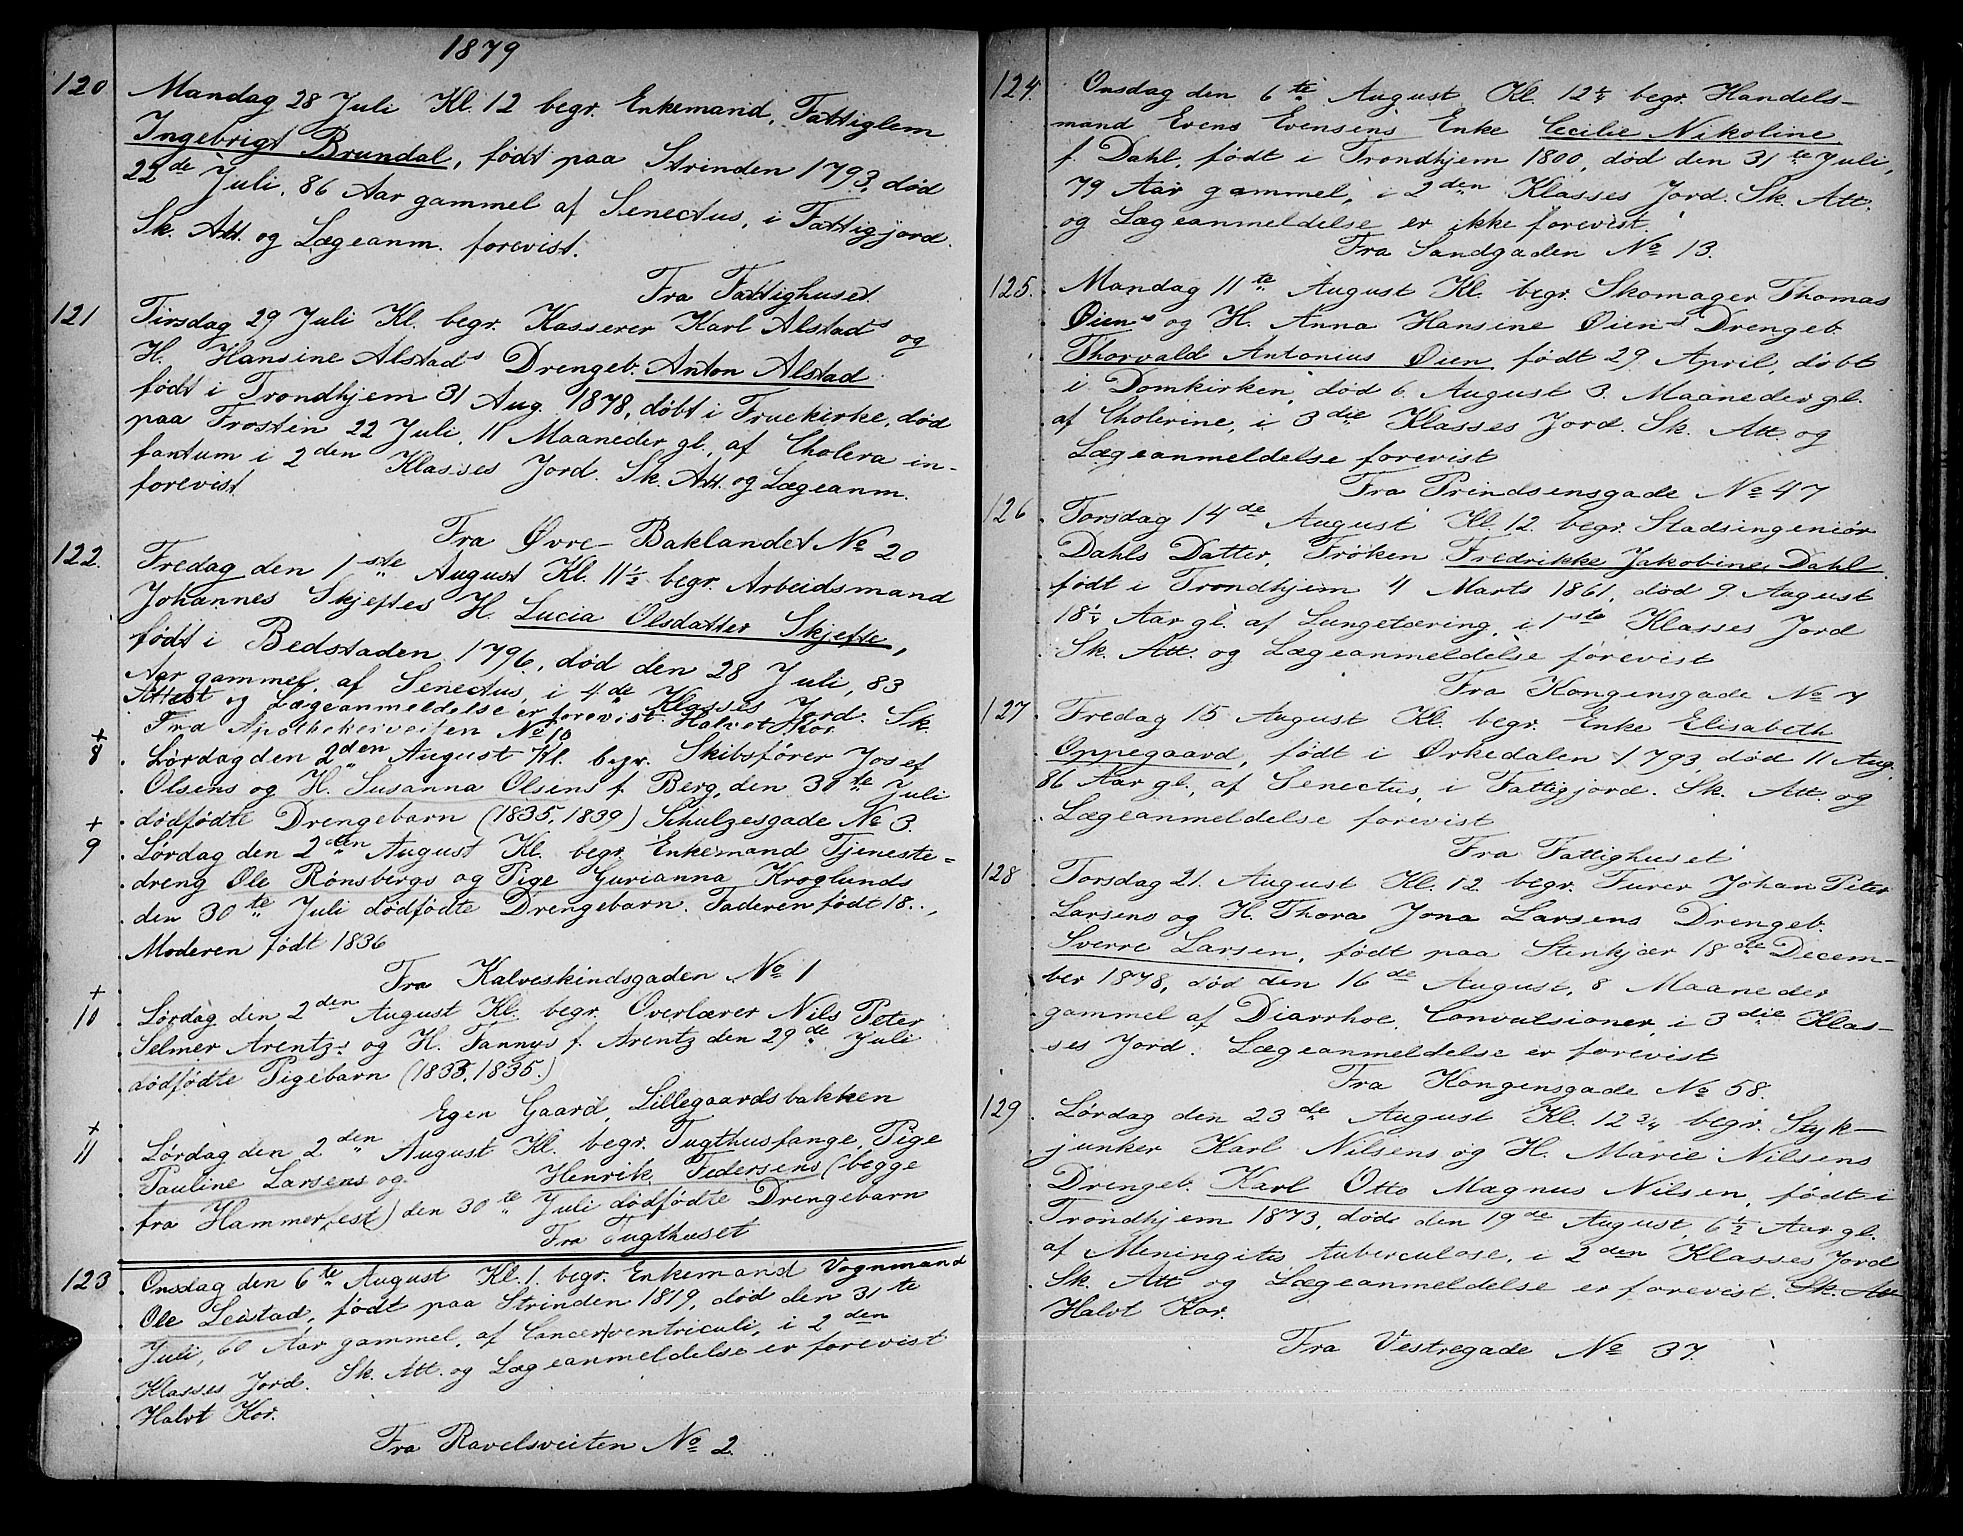 1879
120 Mandag 28 Juli Kl. 12 begr. Enkemand, Fattiglem
Ingebrigt Brundal, født paa Strinden 1793, død
22de Juli, 86 Aar gammel af Senectus, i Fattigjord.
Sk. Att. og Lægeanm. forevist.
Fra Fattighuset.
121 Tirsdag 29 Juli Kl. begr. Kasserer Karl Alstads og
H. Hansine Alstads Drengeb. Anton Alstad
født i Trondhjem 31 Aug. 1878, døbt i Fruekirke, død
paa Frosten 22 Juli, 11 Maaneder gl., af Cholera in-
fantum i 2den Klasses Jord. Sk. Att. og Lægeanm.
forevist.
Fra Øvre-Baklandet No 20
122. Fredag den 1ste August Kl. 11½ begr. Arbeidsmand
Johannes Skjeftes H. Lucia Olsdatter Skjefte,
født i Bedstaden 1796, død den 28 Juli, 83
Aar gammel, af Senectus, i 4de Klasses Jord. Sk.
Attest og Lægeanmeldelse er forevist. Halvt Kor.
Fra Apothekerveiten No 10
+
8 Lørdag den 2den August Kl. begr. Skibsfører Josef
Olsens og H. Susanna Olsens f. Berg, den 30te Juli
dødfødte Drengebarn (1835, 1839) Schulzesgade No 3.
+
9 Lørdag den 2den August Kl. begr. Enkemand Tjeneste-
dreng Ole Rønsbergs og Pige Gurianna Kroglunds
den 30te Juli dødfødte Drengebarn. Faderen født 18..,
Moderen født 1836
Fra Kalveskindsgaden No 1
+
10 Lørdag den 2den August Kl. begr. Overlærer Nils Peter
Selmer Arentz's og H. Fannys f. Arentz den 29de Juli
dødfødte Pigebarn (1833, 1835.)
Egen Gaard, Lillegaardsbakken
+
11 Lørdag den 2den August Kl. begr. Tugthusfange, Pige
Pauline Larsens og Henrik Pedersens (begge
fra Hammerfest) den 30te Juli dødfødte Drengebarn
Fra Tugthuset
123 Onsdag den 6te August Kl. 1. begr. Enkemand Vognmand
Ole Leistad, født paa Strinden 1819, død den 31te
Juli, 60 Aar gammel, af Cancer ventriculi, i 2den
Klasses Jord. Sk. Att. og Lægeanmeldelse er forevist
Halvt Kor.
Fra Ravelsveiten No 2.
124. Onsdag den 6te August Kl. 12¼ begr. Handels-
mand Evens Evensens Enke Cecilie Nikoline
f. Dahl, født i Trondhjem 1800, død den 31te Juli,
79 Aar gammel, i 2den Klasses Jord. Sk. Att.
og Lægeanmeldelse er ikke forevist.
Fra Sandgaden No 13.
125. Mandag 11te August Kl. begr. Skomager Thomas
Øiens og H. Anna Hansine Øiens Drengeb.
Thorvald Antonius Øien født 29 April, døbt
i Domkirken, død 6 August 3 Maaneder gl.
af Cholerine, i 3die Klasses Jord. Sk. Att. og
Lægeanmeldelse forevist
Fra Prindsensgade No 47
126 Torsdag 14de August Kl. 12. begr. Stadsingeniør
Dahls Datter, Frøken Fredrikke Jakobine Dahl
født i Trondhjem 11 Marts 1861, død 9 August
18¼ Aar gl. af Lungetæring, i 1ste Klasses Jord
Sk. Att. og Lægeanmeldelse forevist
Fra Kongensgade No 7
127 Fredag 15 August Kl. begr. Enke Elisabeth
Oppegaard, født i Ørkedalen 1793, død 11 Aug.
86 Aar gl., af Senectus, i Fattigjord. Sk. Att. og
Lægeanmeldelse forevist
Fra Fattighuset
128 Torsdag 21. August Kl. 12. begr. Furer Johan Peter
Larsens og H. Thora Jona Larsens Drengeb.
Sverre Larsen, født paa Stenkjær 18de Decem-
ber 1878, død den 16de August, 8 Maaneder
gammel af Diarrhoe, Convulsioner, i 3die Klas-
ses Jord. Lægeanmeldelse er forevist
Fra Kongensgade No 58.
129 Lørdag den 23de August Kl. 12¾ begr. Styk-
junker Karl Nilsens og H. Marie Nilsens
Drengeb. Karl Otto Magnus Nilsen, født i
Trondhjem 1873, døde den 19de August, 6½ Aar gl.
af Meningitis tuberculose, i 2den Klasses Jord
Sk. Att og Lægeanmeldelse er forevist. Sk. Att
Halvt Kor.
Fra Vestregade No 37.